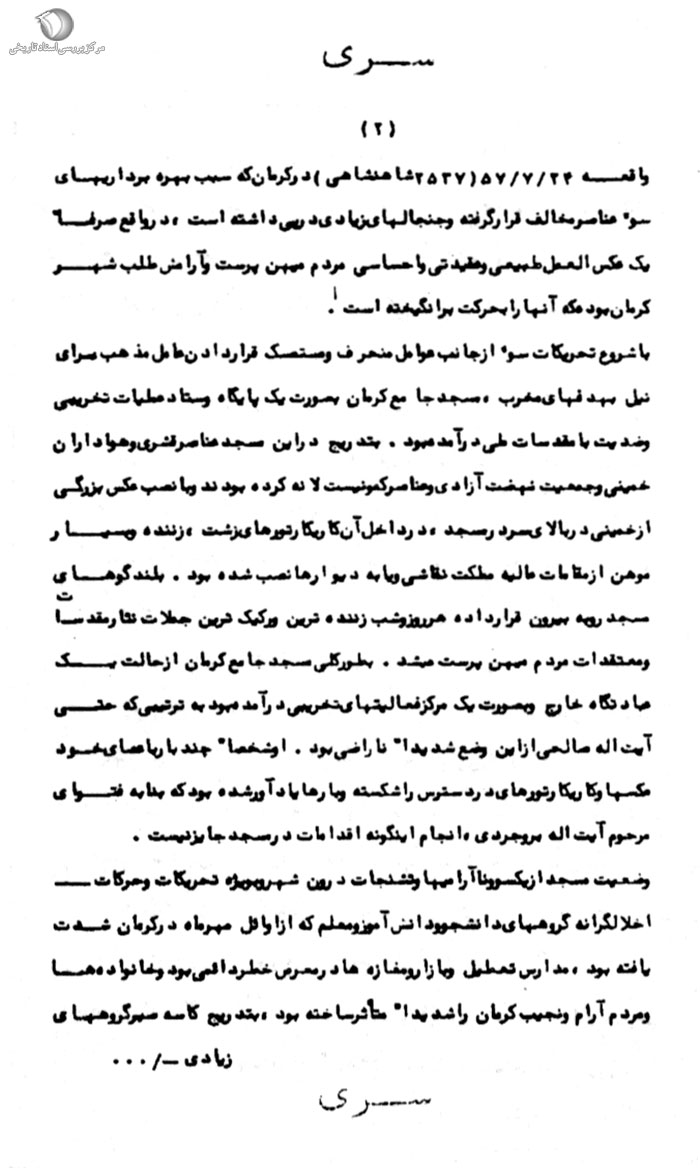 مرکز بررسی اسناد تاریخی
سری
(۲)
واقعه ۵۷/۷/۲۴ (۲۵۳۷ شاهنشاهی) در کرمان که سبب بهره برداریهای
سوء عناصر مخالف قرار گرفته وجنجالهای زیادی در پی داشته است ، در واقع صرفا"
یک عکس العمل طبیعی وعقیدتی واحساسی مردم میهن پرست وآرامش طلب شهر
کرمان بوده که آنها را بحرکت برانگیخته است .
با شروع تحریکات سوء از جانب عوامل منحرف ومستمسک قراردادن عامل مذهب برای
نیل بهدفهای مخرب ، مسجد جامع کرمان بصورت یک پایگاه وستاد عملیات تخریبی
وضدیت با مقدسات ملی درآمده بود . بتدریج در این مسجد عناصر قشری وهواداران
خمینی وجمعیت نهضت آزادی وعناصر کمونیست لانه کرده بودند وبا نصب عکس بزرگی
از خمینی در بالای سردر مسجد ، در داخل آن کاریکاتورهای زشت ، زننده وبسیار
موهن از مقامات عالیه مملکت نقاشی ویا به دیوارها نصب شده بود . بلندگوهای
مسجد رو به بیرون قرار داده هر روز وشب زننده ترین ورکیک ترین جملات نثار مقدسات
ومعتقدات مردم میهن پرست میشد . بطورکلی مسجد جامع کرمان از حالت یک
عبادتگاه خارج وبصورت یک مرکز فعالیتهای تخریبی درآمده بود به ترتیبی که حتی
آیت اله صالحی از این وضع شدیدا" ناراضی بود . او شخصا" چند بار با عصای خود
عکسها وکاریکاتورهای در دسترس را شکسته وبارها یادآور شده بود که بنا به فتوای
مرحوم آیت اله بروجردی ، انجام اینگونه اقدامات در مسجد جایز نیست .
وضعیت مسجد از یکسو وناآرامیها وتشنجات درون شهر وبویژه تحریکات وحرکات ــ
اخلالگرانه گروههای دانشجو ودانش آموز ومعلم که از اوائل مهرماه در کرمان شدت
یافته بود ، مدارس تعطیل وبازار ومغازه ها در معرض خطر دائمی بود وخانواده ها
ومردم آرام ونجیب کرمان را شدیدا" متأثر ساخته بود ، بتدریج کاسه صبر گروههای
زیادی ــ/...
سری